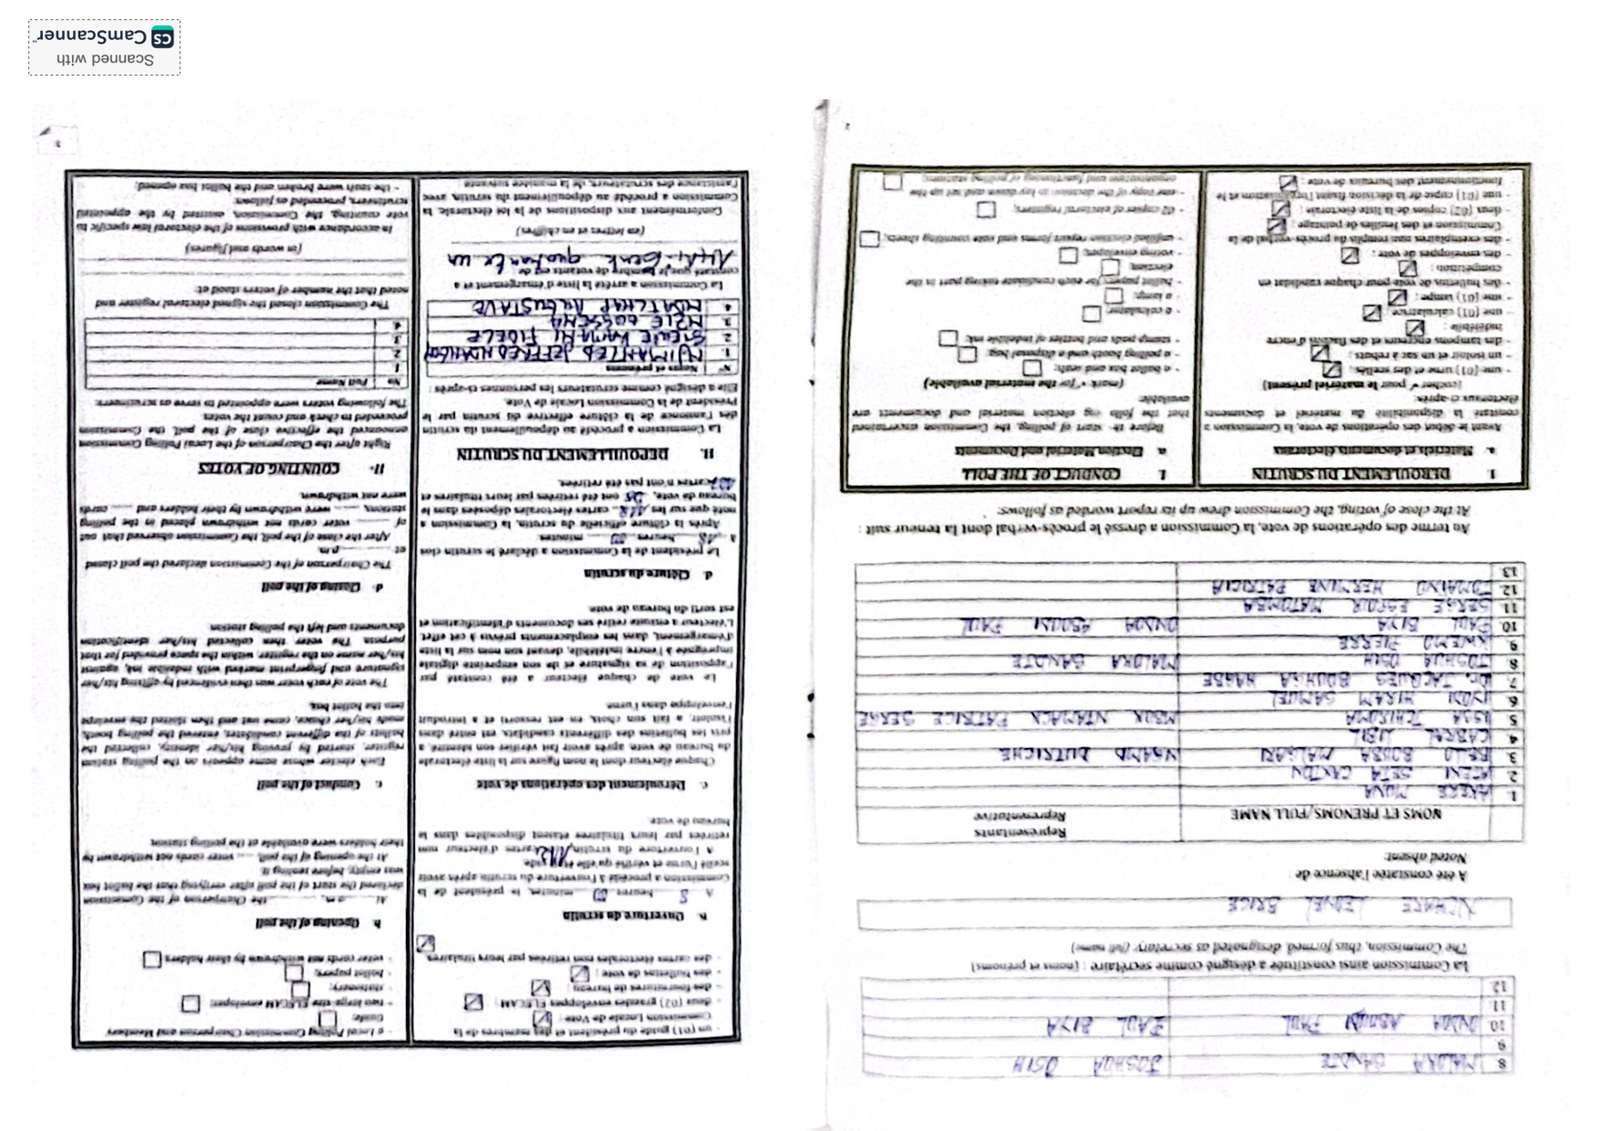 8 MALOKA BANDTE JOSHUA OSIH
9
10 ONDOA ABOUDI PAUL PAUL BIYA
11
12
La Commission ainsi constituée a désigné comme secrétaire : (noms et prénoms)
The Commission, thus formed, designated as secretary: (full name)
LEONEL BRICE
A été constatée l'absence de
Noted absent:
NOMS ET PRENOMS/FULL NAME Représentants
Representative
1. AKERE MUNA
2.
3. BELLO BOUBA MAIGARI
4. CABRAL LIBII
5. ISSA TCHIROMA PATRICE SERGE
6. HIRAM SAMUEL
7. Dr. JACQUES BOUHGA HAGBE
8 JOSHUA OSIH MALOKA BANDTE
9. KWEMO PIERRE
10. PAUL BIYA ONDOA ABOUDI PAUL
11 SERGE ESPOIR MATOMBA
12. TOMAINO HERMINE PATRICIA
13
Au terme des opérations de vote, la Commission a dressé le procès-verbal dont la teneur suit :
At the close of voting, the Commission drew up its report worded as follows:
I. DEROULEMENT DU SCRUTIN
a. Matériels et documents électoraux
Avant le début des opérations de vote, la Commission a
constaté la disponibilité du matériel et documents
électoraux ci-après:
(cocher ✓ pour le matériel présent)
- une (01) urne et des scellés ;
- un isoloir et un sac à rebuts ;
- des tampons encreurs et des flacons d'encre
indélébile ;
- une (01) calculatrice ;
- une (01) lampe ;
- des bulletins de vote pour chaque candidat en
compétition ;
- des enveloppes de vote ;
- des exemplaires non remplis du procès-verbal de la
Commission et des feuilles de pointage ;
- deux (02) copies de la liste électorale ;
- une (01) copie de la décision fixant l'organisation et le
fonctionnement des bureaux de vote ;
I. CONDUCT OF THE POLL
a. Election Material and Documents
Before the start of polling, the Commission ascertained
that the following election material and documents are
available:
(mark ✓ for the material available)
- a ballot box and seals;
- a polling booth and a disposal bag;
- stamp pads and bottles of indelible ink;
- a calculator;
- a lamp;
- ballot papers for each candidate taking part in the
election;
- voting envelopes;
- unfilled election report forms and vote counting sheets;
- 02 copies of electoral registers;
- one copy of the decision to lay down and set up the
organisation and functioning of polling stations;
2
- un (01) guide du président et des membres de la
Commission Locale de Vote ;
- deux (02) grandes enveloppes ELECAM ;
- des fournitures de bureau ;
- des bulletins de vote ;
- des cartes électorales non retirées par leurs titulaires
b. Ouverture du scrutin
A 8 heures 00 minutes, le président de la
Commission a procédé à l'ouverture du scrutin après avoir
scellé l'urne et vérifié qu'elle était vide.
A l'ouverture du scrutin, cartes d'électeur non
retirées par leurs titulaires étaient disponibles dans le
bureau de vote.
c. Déroulement des opérations de vote
Chaque électeur dont le nom figure sur la liste électorale
du bureau de vote après avoir fait vérifier son identité, a
pris les bulletins des différents candidats, est entré dans
l'isoloir, a fait son choix, en est ressorti et a introduit
l'enveloppe dans l'urne.
Le vote de chaque électeur a été constaté par
l'apposition de sa signature et de son empreinte digitale
imprégnée à l'encre indélébile, devant son nom sur la liste
d'émargement, dans les emplacements prévus à cet effet.
L'électeur a ensuite retiré ses documents d'identification et
est sorti du bureau de vote.
d. Clôture du scrutin
Le président de la Commission a déclaré le scrutin clos
à 18 heures 00 minutes.
Après la clôture officielle du scrutin, la Commission a
noté que sur les cartes électorales déposées dans le
bureau de vote, ont été retirées par leurs titulaires et
cartes n'ont pas été retirées.
II. DEPOUILLEMENT DU SCRUTIN
La Commission a procédé au dépouillement du scrutin
dès l'annonce de la clôture effective du scrutin par le
Président de la Commission Locale de Vote.
Elle a désigné comme scrutateurs les personnes ci-après :
N° Noms et prénoms
1. JEFFRED
2 KAMARI FIDELE
3.
4 AUGUSTAVE
La Commission a arrêté la liste d'émargement et a
constaté que le nombre de votants est de :
quarante un
(en lettres et en chiffres)
Conformément aux dispositions de la loi électorale, la
Commission a procédé au dépouillement du scrutin, avec
l'assistance des scrutateurs, de la manière suivante :
- a Local Polling Commission Chairperson and Members
Guide;
- two large-size ELECAM envelopes;
- stationery;
- ballot papers;
- voter cards not withdrawn by their holders
b. Opening of the poll
At a.m, the Chairperson of the Commission
declared the start of the poll after verifying that the ballot box
was empty, before sealing it.
At the opening of the poll, voter cards not withdrawn by
their holders were available at the polling station.
c. Conduct of the poll
Each elector whose name appears on the polling station
register, started by proving his/her identity, collected the
ballots of the different candidates, entered the polling booth,
made his/her choice, came out and then slotted the envelope
into the ballot box.
The vote of each voter was then evidenced by affixing his/her
signature and fingerprint marked with indelible ink, against
his/her name on the register, within the space provided for that
purpose. The voter then collected his/her identification
documents and left the polling station
d- Closing of the poll
The Chairperson of the Commission declared the poll closed
at p.m.
After the close of the poll, the Commission observed that out
of voter cards not withdrawn placed in the polling
stations, were withdrawn by their holders and cards
were not withdrawn.
II- COUNTING OF VOTES
Right after the Chairperson of the Local Polling Commission
announced the effective close of the poll, the Commission
proceeded to check and count the votes.
The following voters were appointed to serve as scrutineers:
No Full Name
1
2
3
4
The Commission closed the signed electoral register and
noted that the number of voters stood at:
(in words and figures)
In accordance with provisions of the electoral law specific to
vote counting, the Commission, assisted by the appointed
scrutineers, proceeded as follows:
- the seals were broken and the ballot box opened;
3
Scanned with
CS CamScanner